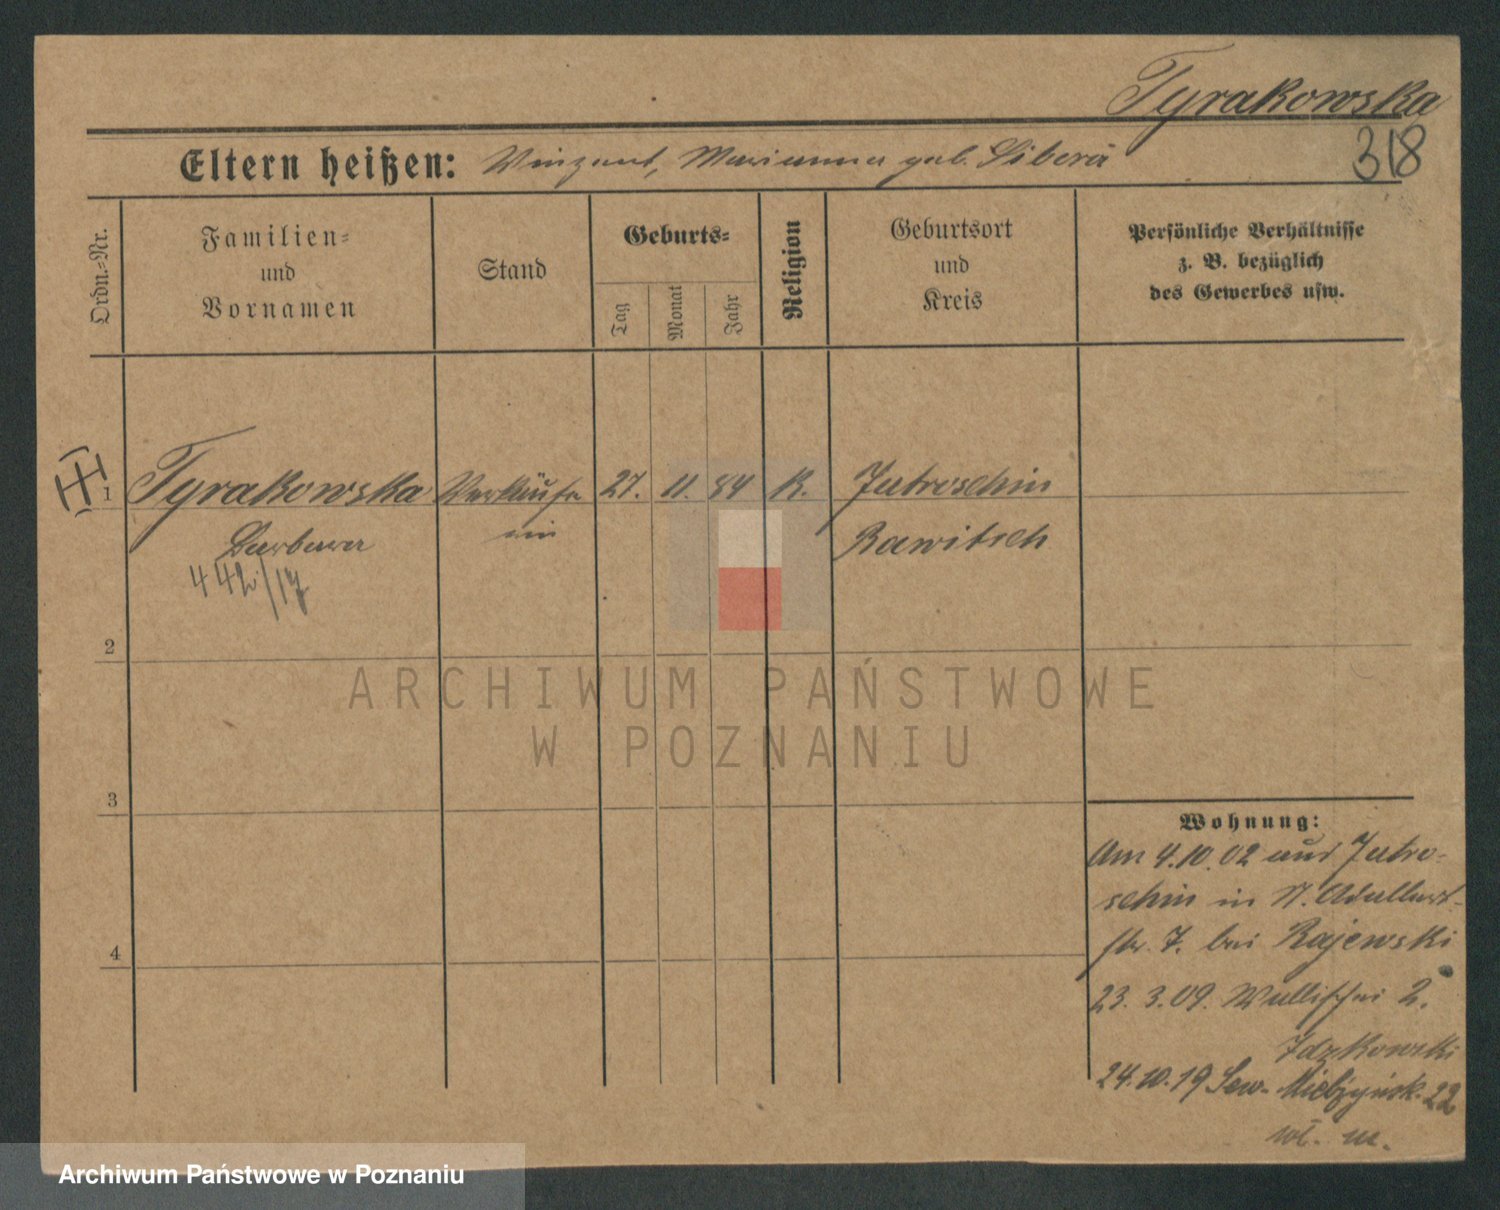 Tyrakowska
318
Eltern heißen: Vinzent, Marianna geb. Siberà
Ordn.-Nr.
Familien-
und
Vornamen
Stand
Geburts-
Tag
Monat
Jahr
Religion
Geburtsort
und
Kreis
Persönliche Verhältnisse
z. B. bezüglich
des Gewerbes usw.
1 Tyrakowska Verkäufe 27. 11. 84 K. Jutroschin
Barbara rin Rawitsch
442/17
2
3
4
Wohnung:
Am 4.10.02 aus Jutro-
schin in St. Adalbert-
str. 7. bei Rajewski
23. 3.09. Wallischei 2.
Idzkowski
24.10.19 Sew. Mielżyńsk. 22
wł. m.
ARCHIWUM PAŃSTWOWE
W POZNANIU
Archiwum Państwowe w Poznaniu